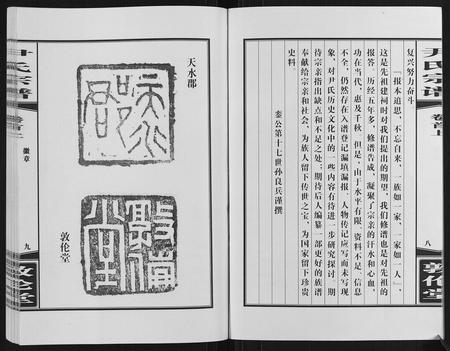 尹氏宗谱
卷首上
八
敦伦堂
复兴努力奋斗
『报本追思，不忘自来，一族如一家，一家如一人』，
这是先祖建祠时对我们提出的期望，我们修谱也是对先祖的
报答。历经五年多，修谱告成，凝聚了宗亲的汗水和心血，
功在当代，惠及千秋。但是，由于水平有限，资料不足，信息
不全，仍然存在入谱登记漏填漏报、人物传记应写而未写现
象，对尹氏历史文化中的一些内容有待进一步研究探讨。期
待宗亲指出缺点和不足之处；期待后人编纂一部更好的族谱
奉献给宗亲和社会，为族人留下传世之宝，为国家留下珍贵
史料
銮公第十七世孙良兵谨撰
天水郡
敦伦堂
尹氏宗谱
卷首上
徽章
九
敦伦堂